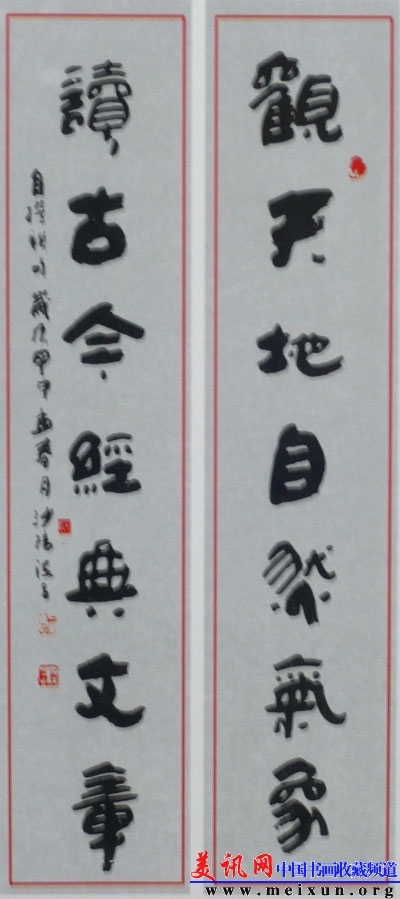 觀天地自然氣象
讀古今經典文章
自撰聯句歲次甲申孟春月
美讯网 中国书画收藏频道
www.meixun.org